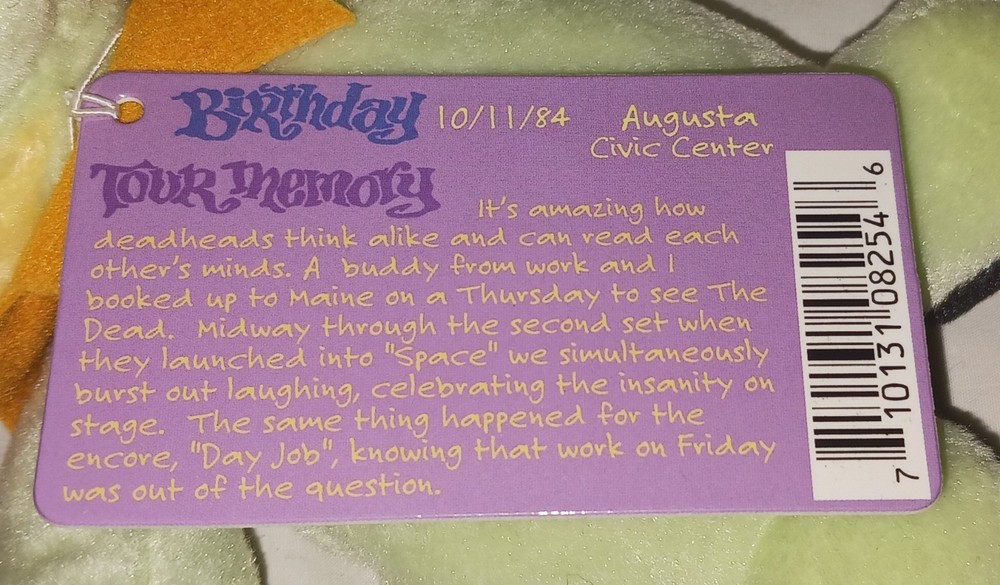 Birthday 10/11/84 Augusta
Civic Center
Tour Memory
It's amazing how
deadheads think alike and can read each
other's minds. A buddy from work and I
booked up to Maine on a Thursday to see The
Dead. Midway through the second set when
they launched into "Space" we simultaneously
burst out laughing, celebrating the insanity on
stage. The same thing happened for the
encore, "Day Job", knowing that work on Friday
was out of the question.
7 10131 08254 6